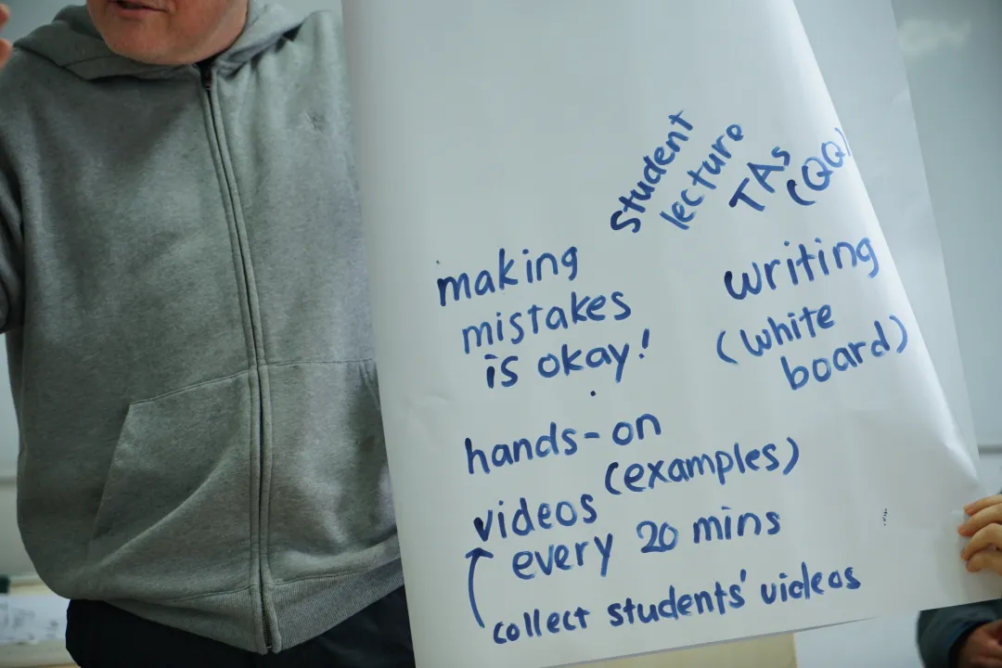 student
lecture
TAs
(QQ)
making
mistakes
is okay!
writing
(white
board)
hands-on
(examples)
videos
every 20 mins
collect students' videos